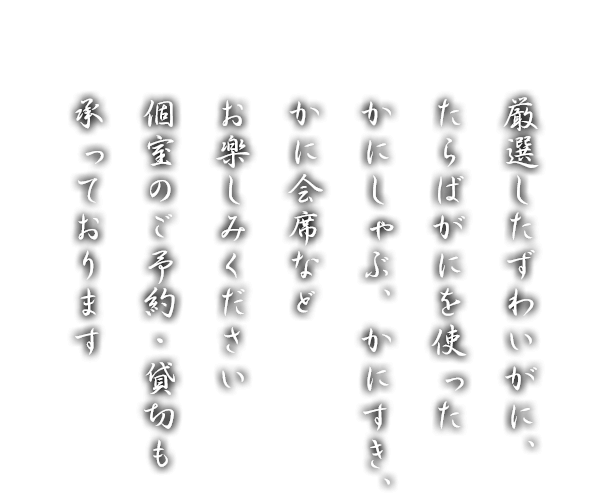 厳選したずわいがに、
たらばがにを使った
かにしゃぶ、かにすき、
かに会席など
お楽しみください
個室のご予約・貸切も
承っております